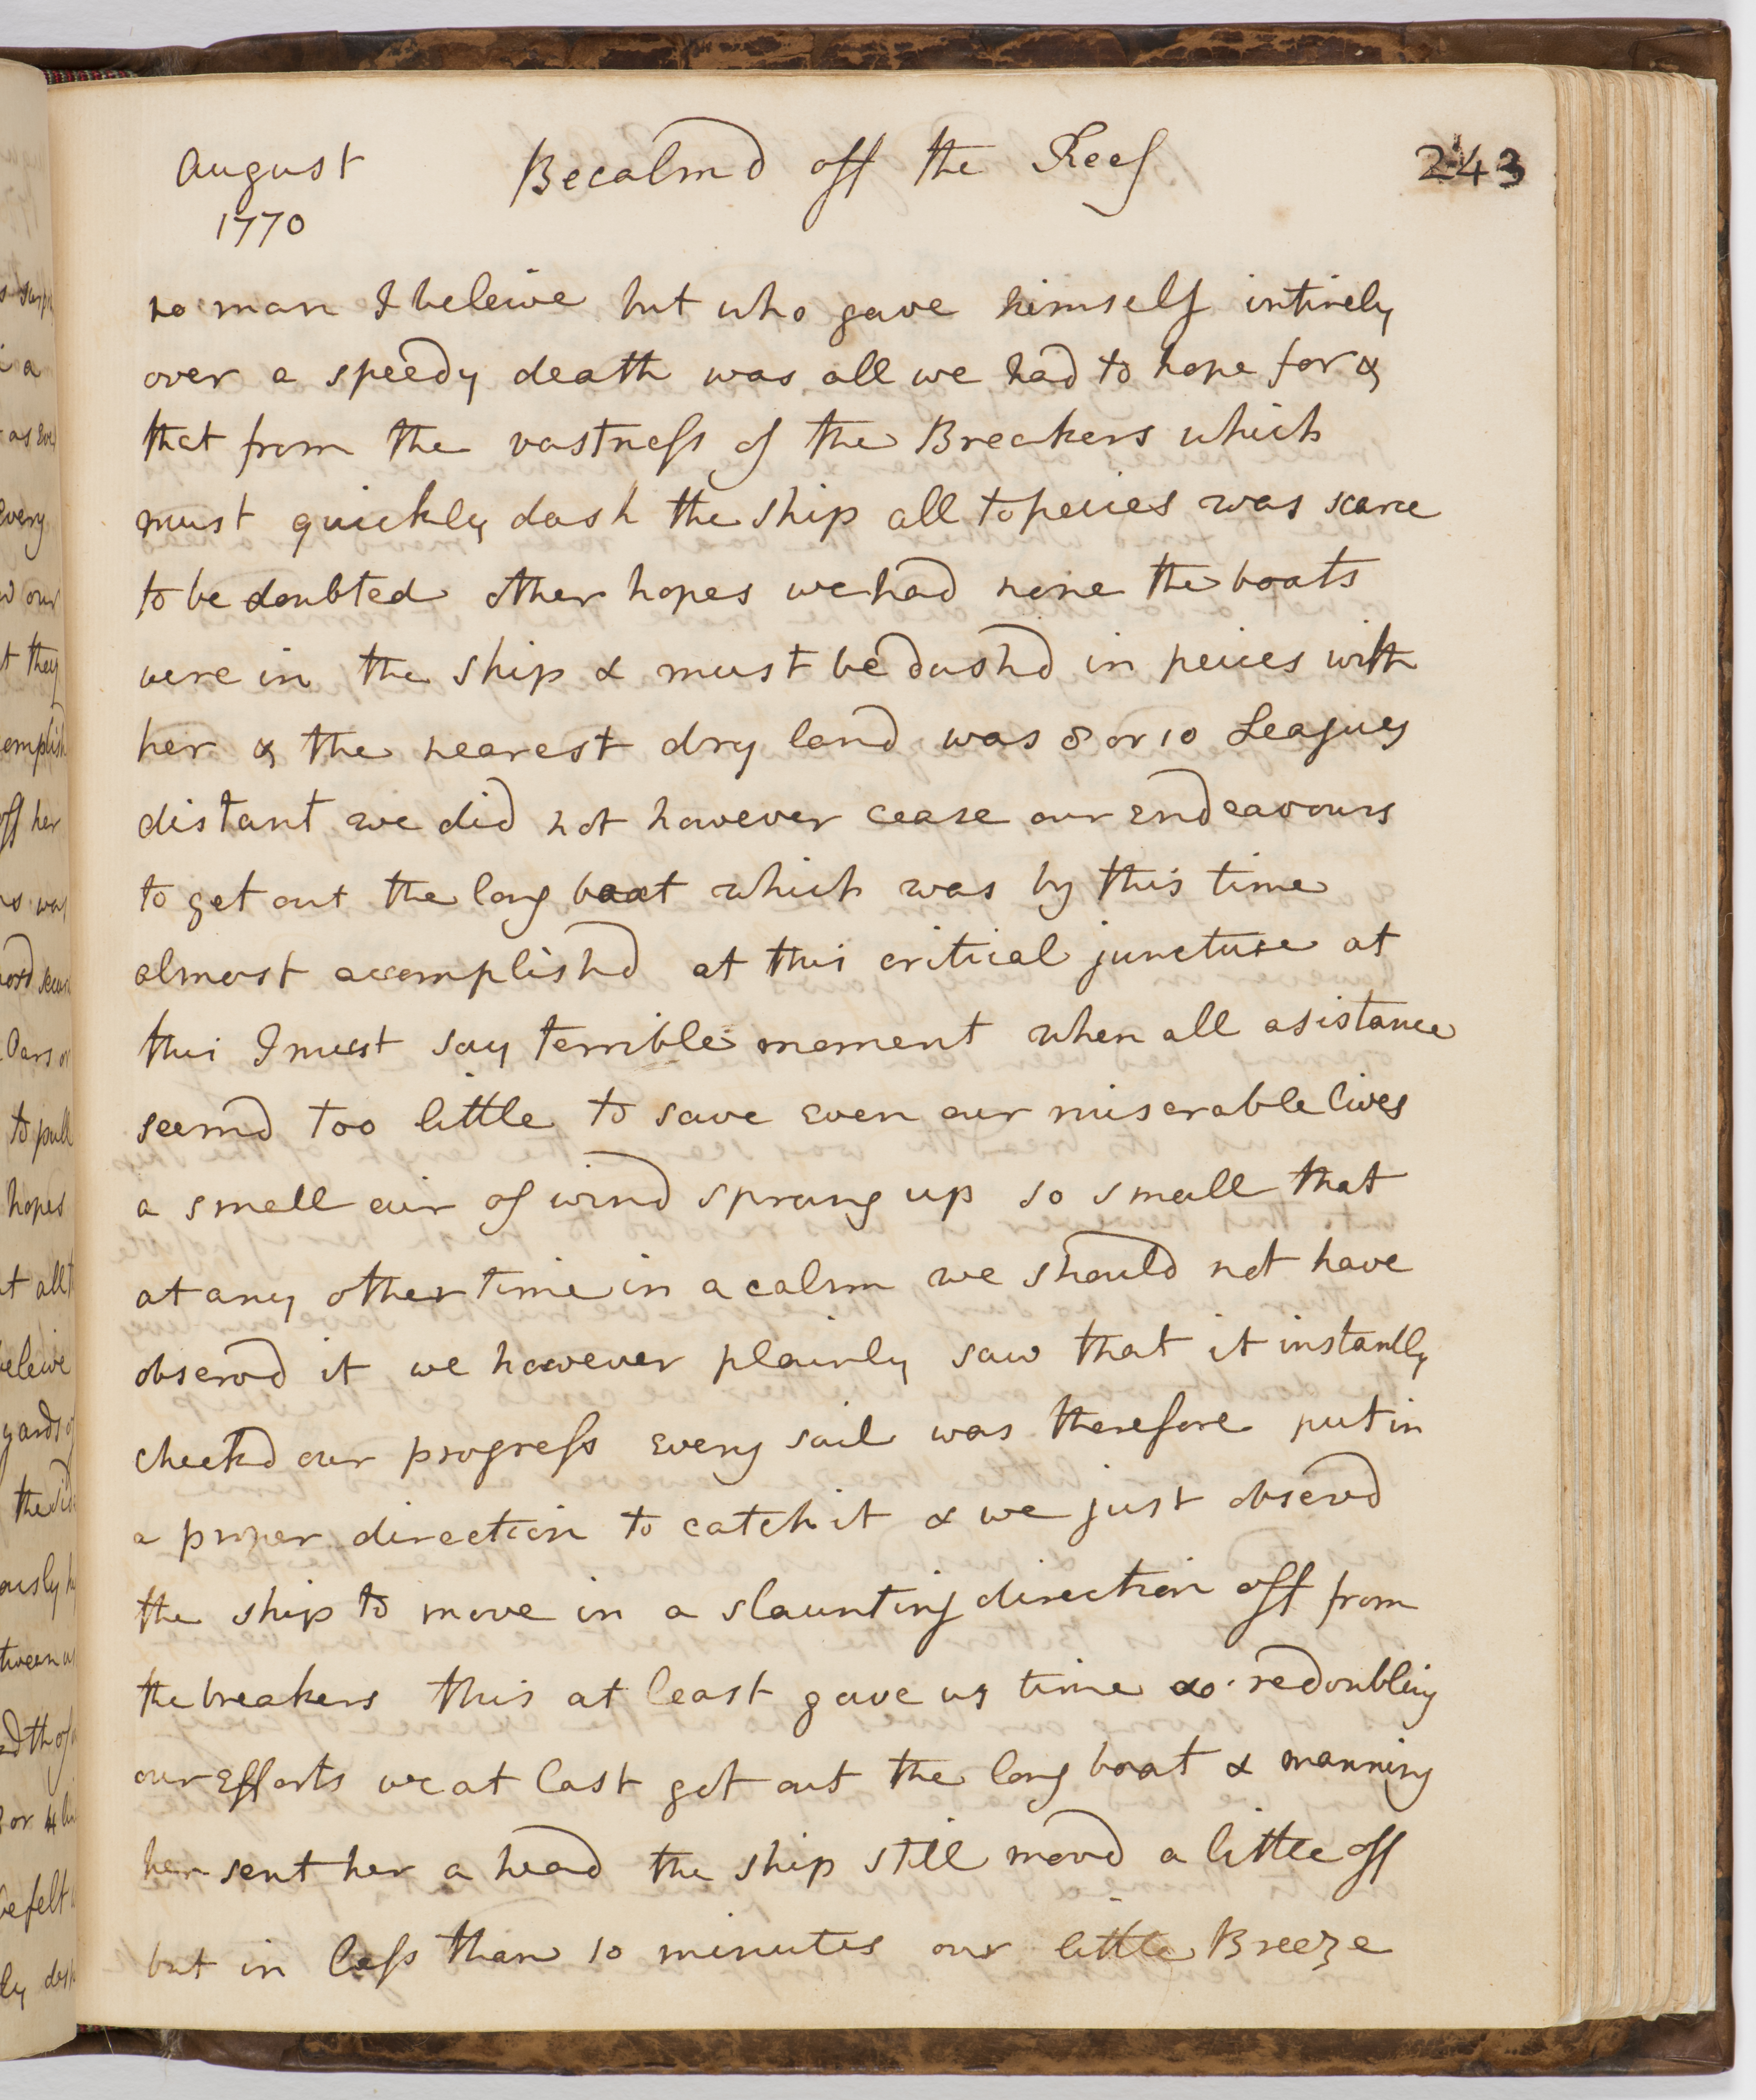 August Becalmd off the Reef 243
1770
no man I beleive but who gave himself intirely
over a speedy death was all we had to hope for &
that from the vastness of the Breakers which
must quickly dash the ship all to peices was scarce
to be doubted other hopes we had none the boats
were in the ship & must be dashd in peices with
her & the nearest dry land was 8 or 10 Leagues
distant we did not however cease our endeavours
to get out the long boat which was by this time
almost accomplishd at this critical juncture at
this I must say terrible moment when all asistance
seemd too little to save even our miserable lives
a small air of wind sprang up so small that
at any other time in a calm we should not have
observd it we however plainly saw that it instantly
checkd our progress every sail was therefore put in
a proper direction to catch it & we just observd
the ship to move in a slaunting direction off from
the breakers this at least gave us time & redoubling
our efforts we at last got out the long boat & manning
her sent her a head the ship still movd a little off
but in less than 10 minutes our little Breeze